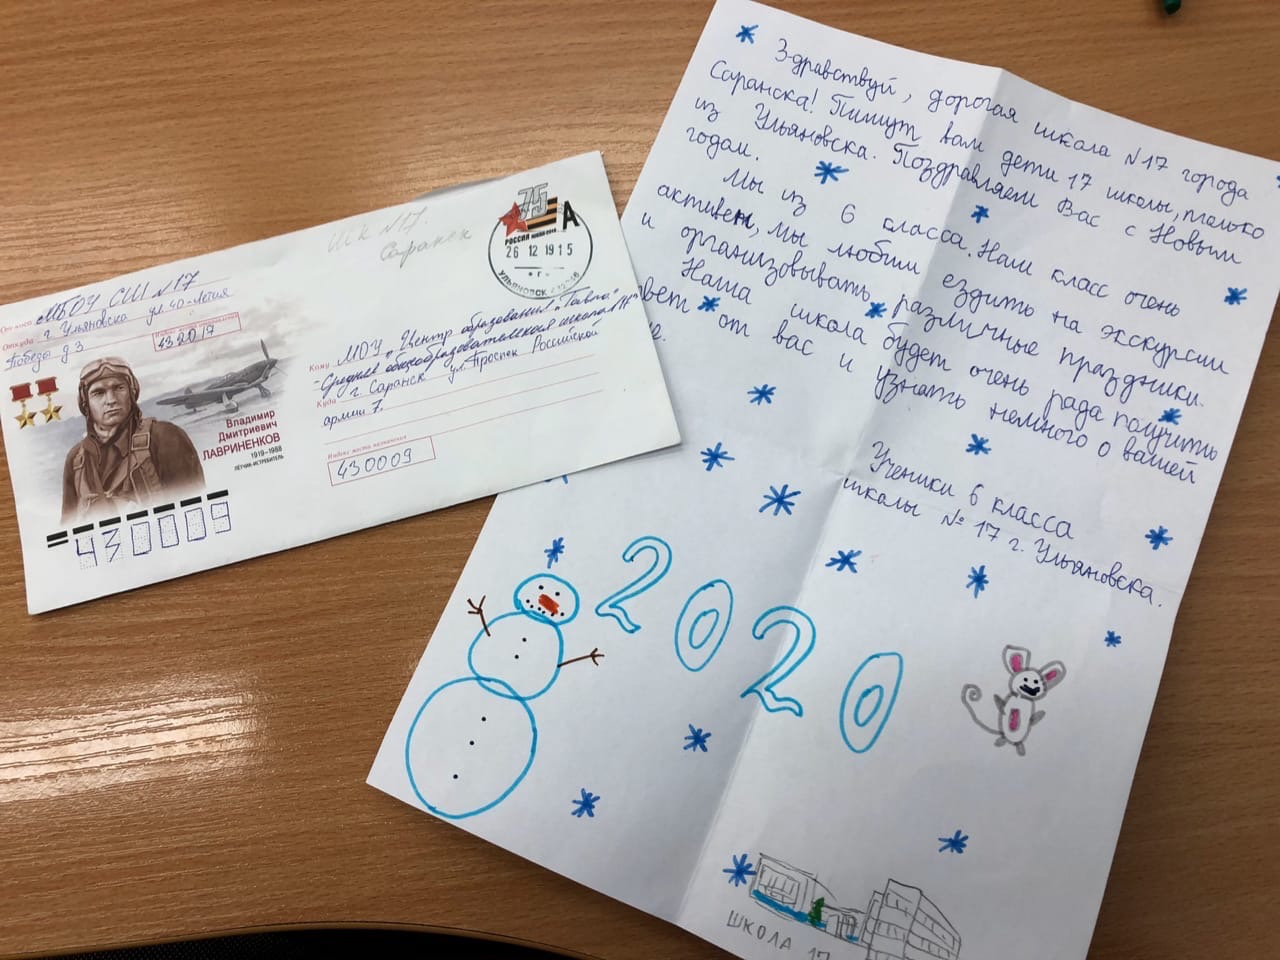 Шк N17.
Саранск
75
А
РОССИЯ
26 12 19 15
УЛЬЯНОВСК
От кого МБОУ СШ N17
Откуда г. Ульяновск ул. 40-летия
Победы д 3
Индекс места отправления
432017
Владимир
Дмитриевич
ЛАВРИНЕНКОВ
1919–1988
ЛЁТЧИК-ИСТРЕБИТЕЛЬ
430009
Кому МОУ "Центр образования "Тавла"
-Средняя общеобразовательная школа N17"
Куда г. Саранск ул. Проспек Российской
армии 7.
Индекс места назначения
430009
Здравствуй, дорогая школа N17 города
Саранска! Пишут вам дети 17 школы, только
из Ульяновска. Поздравляем Вас с Новым
годом.
Мы из 6 класса. Наш класс очень
активен, мы любим ездить на экскурсии
и организовывать различные праздники.
Наша школа будет очень рада получить
вет от вас и узнать немного о вашей
е.
Ученики 6 класса
школы № 17 г. Ульяновска.
2020
ШКОЛА 17